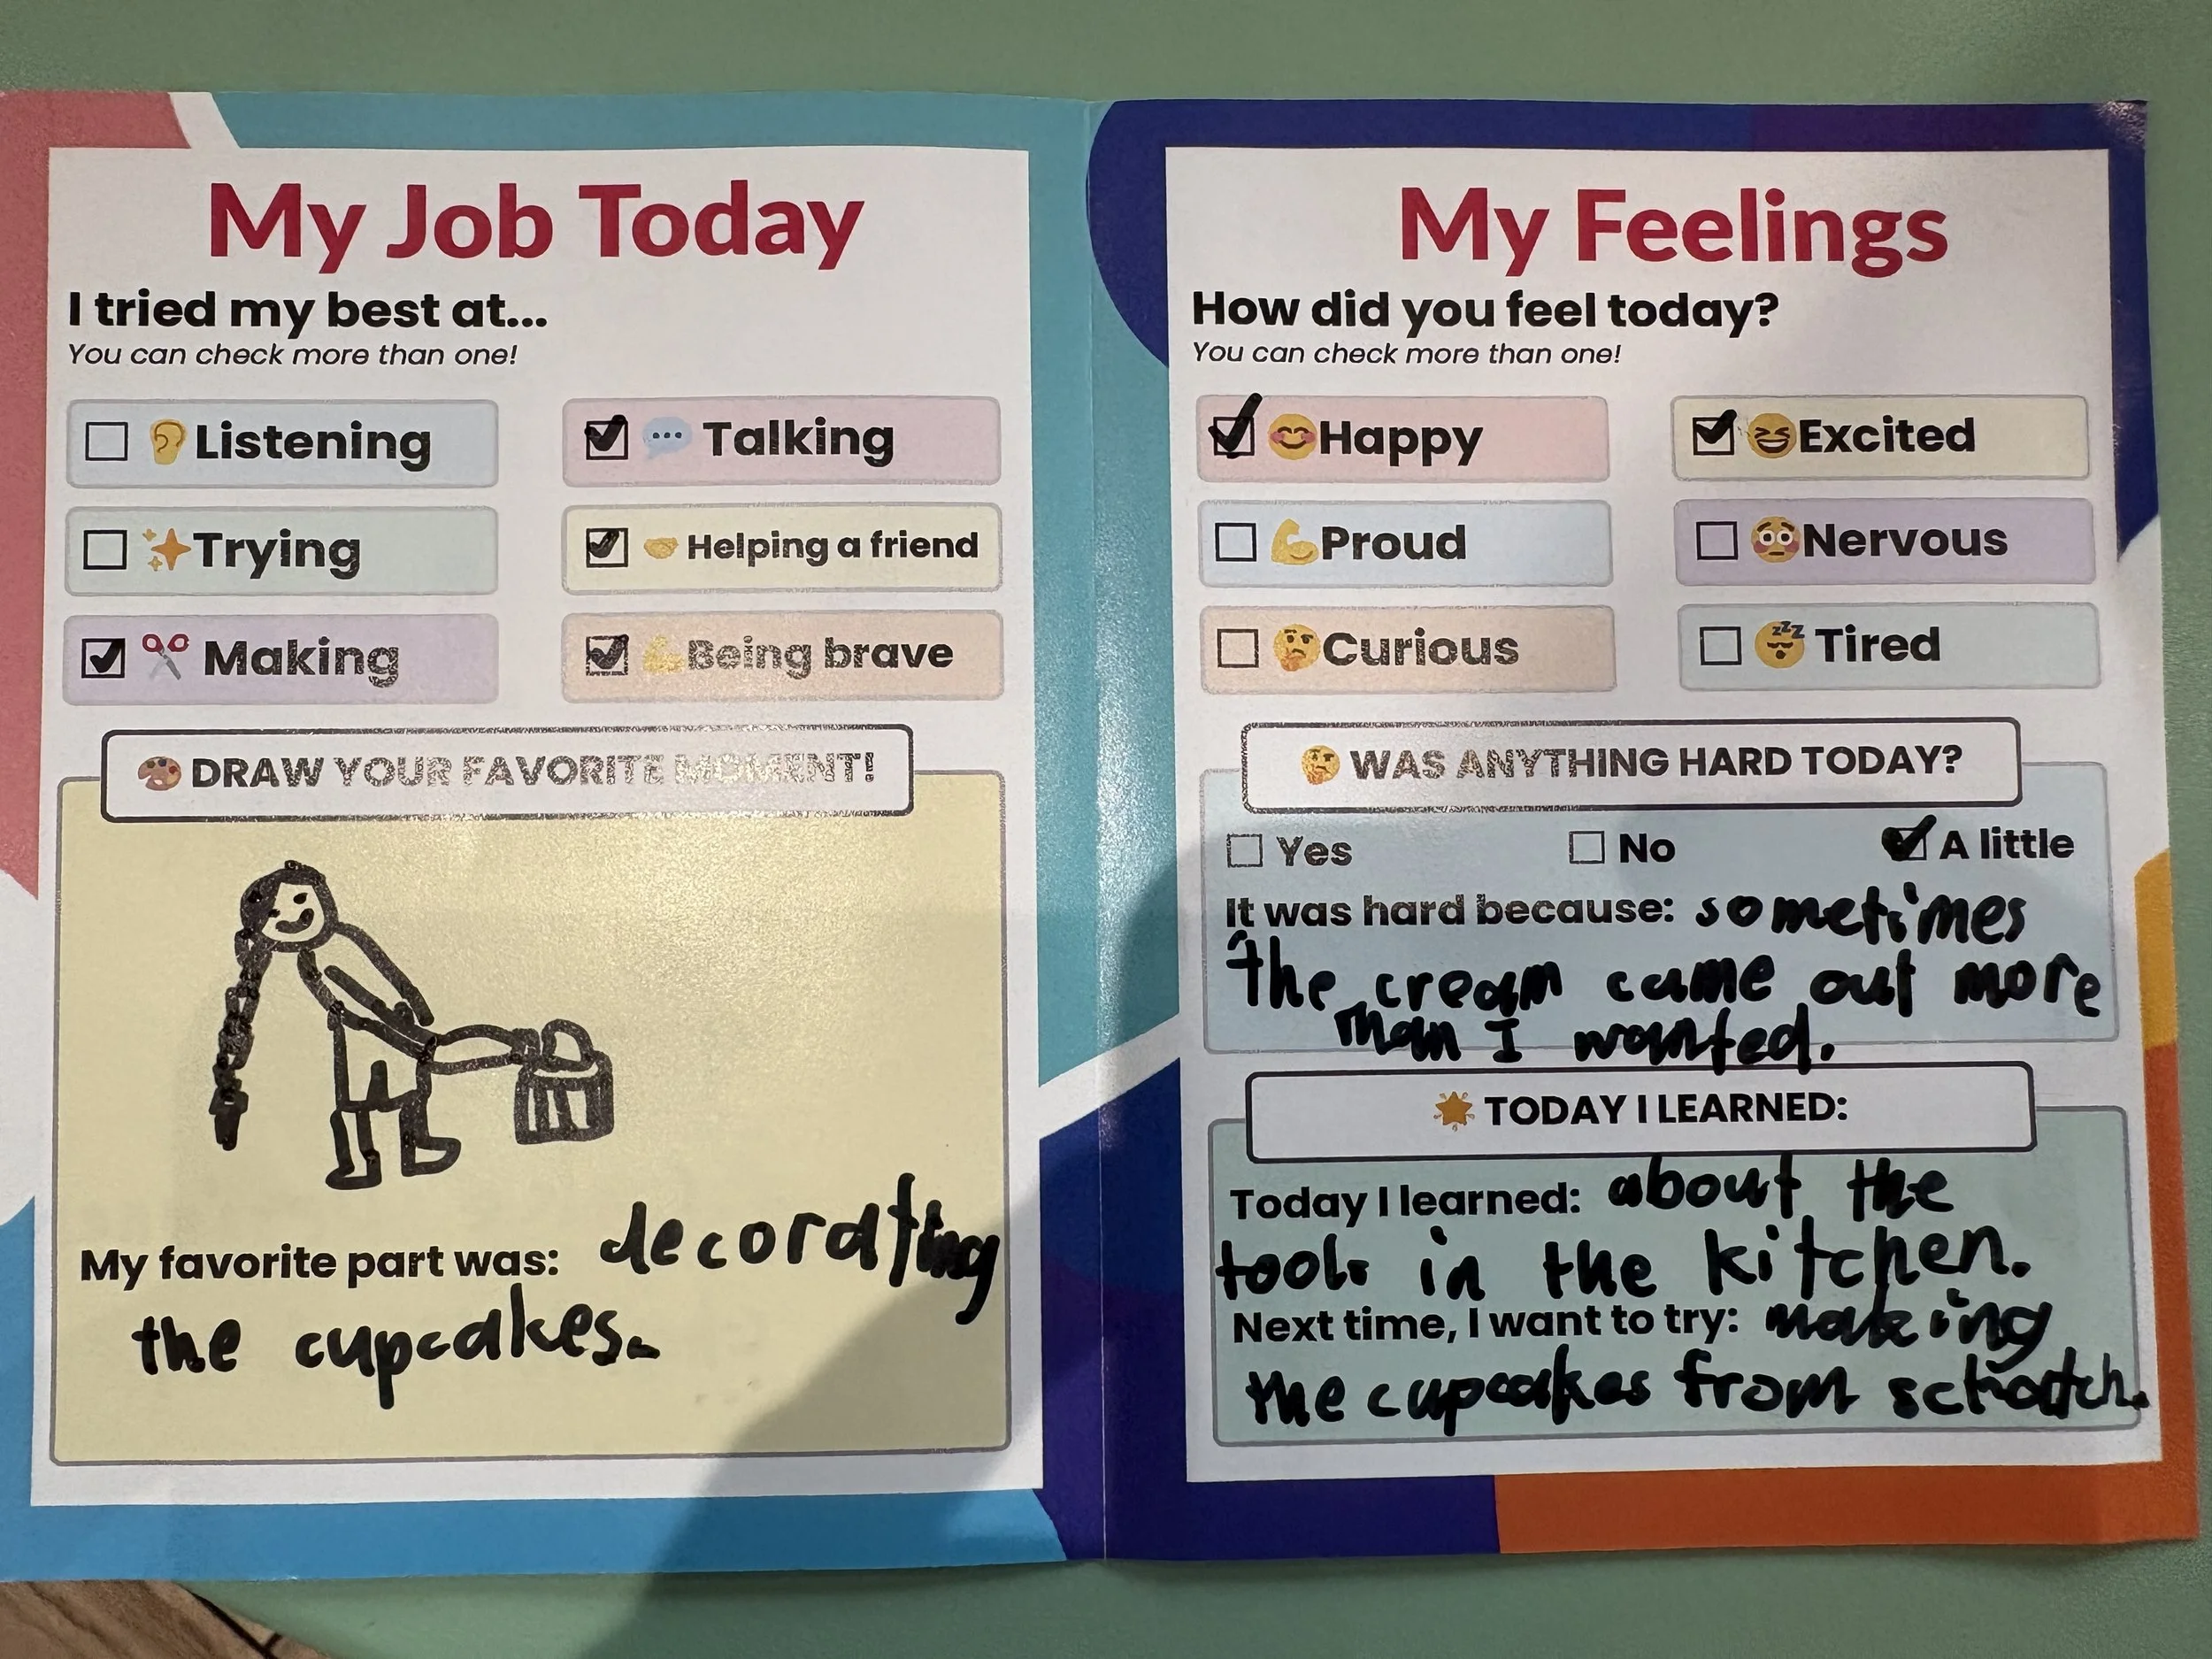 My Job Today
I tried my best at...
You can check more than one!
Listening
Talking
Trying
Helping a friend
Making
Being brave
DRAW YOUR FAVORITE MOMENT!
My favorite part was: decorating
the cupcakes.
My Feelings
How did you feel today?
You can check more than one!
Happy
Excited
Proud
Nervous
Curious
Tired
WAS ANYTHING HARD TODAY?
Yes No A little
It was hard because: sometimes
the cream came out more
than I wanted.
TODAY I LEARNED:
Today I learned: about the
tools in the kitchen.
Next time, I want to try: making
the cupcakes from scratch.